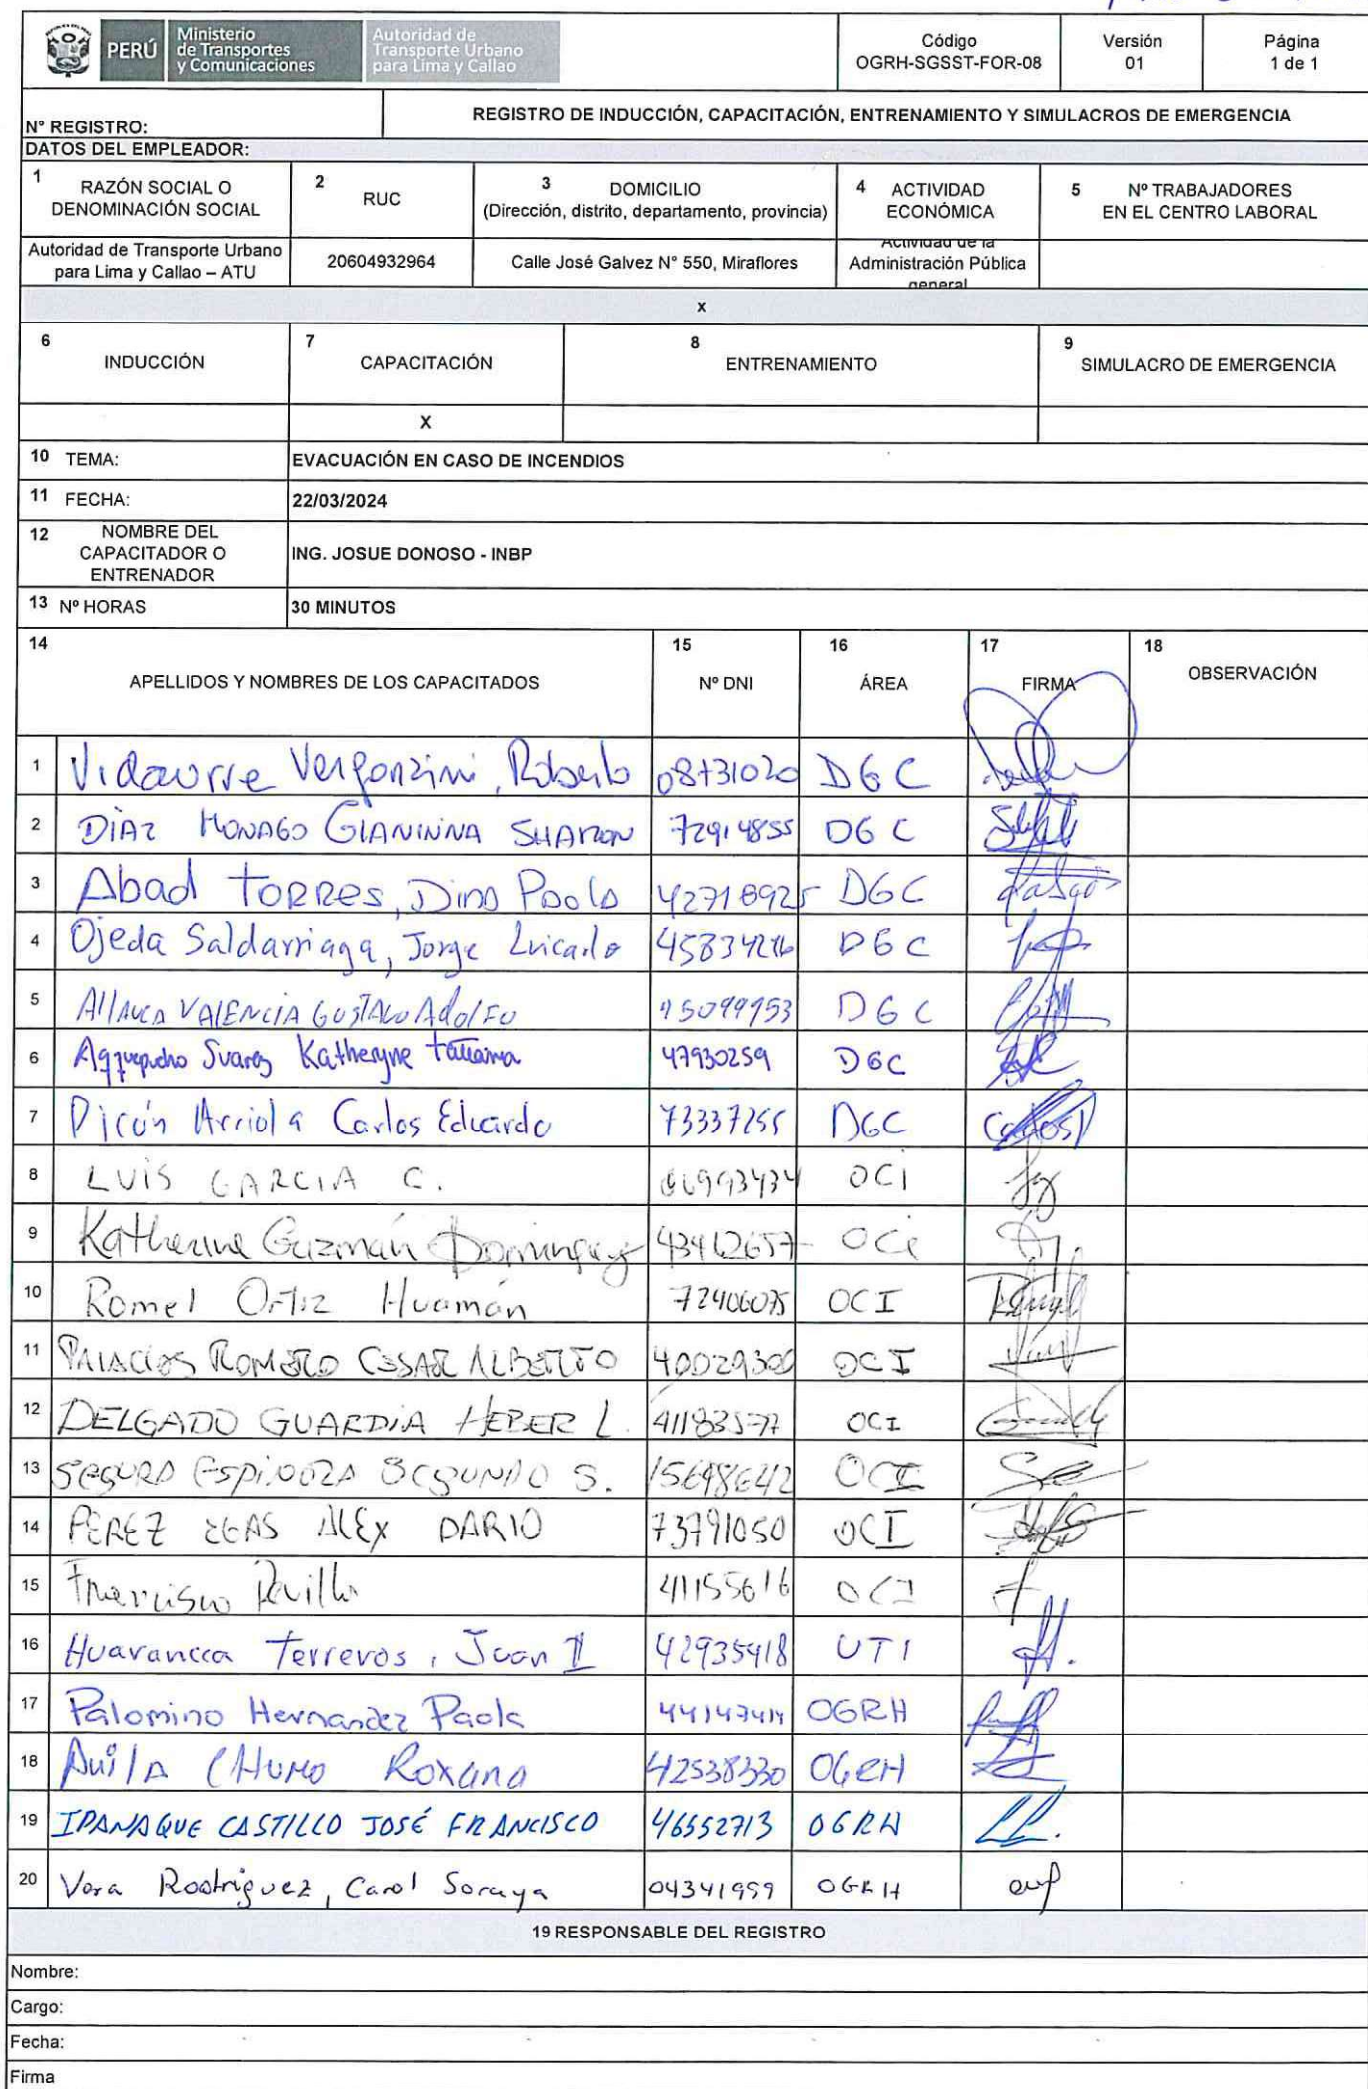 PERÚ
Ministerio
de Transportes
y Comunicaciones
Autoridad de
Transporte Urbano
para Lima y Callao
Código
OGRH-SGSST-FOR-08
Versión
01
Página
1 de 1
N° REGISTRO:
REGISTRO DE INDUCCIÓN, CAPACITACIÓN, ENTRENAMIENTO Y SIMULACROS DE EMERGENCIA
DATOS DEL EMPLEADOR:
1 RAZÓN SOCIAL O
DENOMINACIÓN SOCIAL
2 RUC
3 DOMICILIO
(Dirección, distrito, departamento, provincia)
4 ACTIVIDAD
ECONÓMICA
5 Nº TRABAJADORES
EN EL CENTRO LABORAL
Autoridad de Transporte Urbano
para Lima y Callao – ATU
20604932964
Calle José Galvez N° 550, Miraflores
Actividad de la
Administración Pública
general
x
6 INDUCCIÓN
7 CAPACITACIÓN
8 ENTRENAMIENTO
9 SIMULACRO DE EMERGENCIA
X
10 TEMA: EVACUACIÓN EN CASO DE INCENDIOS
11 FECHA: 22/03/2024
12 NOMBRE DEL
CAPACITADOR O
ENTRENADOR
ING. JOSUE DONOSO - INBP
13 Nº HORAS 30 MINUTOS
14 APELLIDOS Y NOMBRES DE LOS CAPACITADOS
15 Nº DNI
16 ÁREA
17 FIRMA
18 OBSERVACIÓN
1 Vidaurre Vergonzini, Roberto 08731020 DGC
2 DIAZ MONAGO GIANINNA SHARON 72914855 DGC
3 Abad TORRES, Dino Paolo 42718925 DGC
4 Ojeda Saldarriaga, Jorge 45834216 DGC
5 Allauca VALENCIA GUSTAVO AdolFo 45099953 DGC
6 Suarez Katheryne Tatiana 47930259 DGC
7 Picón Arriola Carlos Eduardo 73337255 DGC
8 LUIS GARCIA C. 06993434 OCI
9 Katherine Guzmán Dominguez 43412657 OCI
10 Romel Ortiz Huamán 72406075 OCI
11 PALACIOS ROMERO CESAR ALBERTO 40029300 OCI
12 DELGADO GUARDIA HEBER L. 41183577 OCI
13 SEGURA ESPINOZA SEGUNDO S. 15698642 OCI
14 PEREZ EGAS ALEX DARIO 73791050 OCI
15 Francisco 41155616 OCI
16 Huarancca Terreros, Juan I 42935418 UTI
17 Palomino Hernandez Paola 44147414 OGRH
18 Avila CHUMO Roxana 42538330 OGRH
19 IPANAQUE CASTILLO JOSÉ FRANCISCO 46552713 OGRH
20 Vera Rodriguez, Carol Soraya 04341959 OGRH
19 RESPONSABLE DEL REGISTRO
Nombre:
Cargo:
Fecha:
Firma